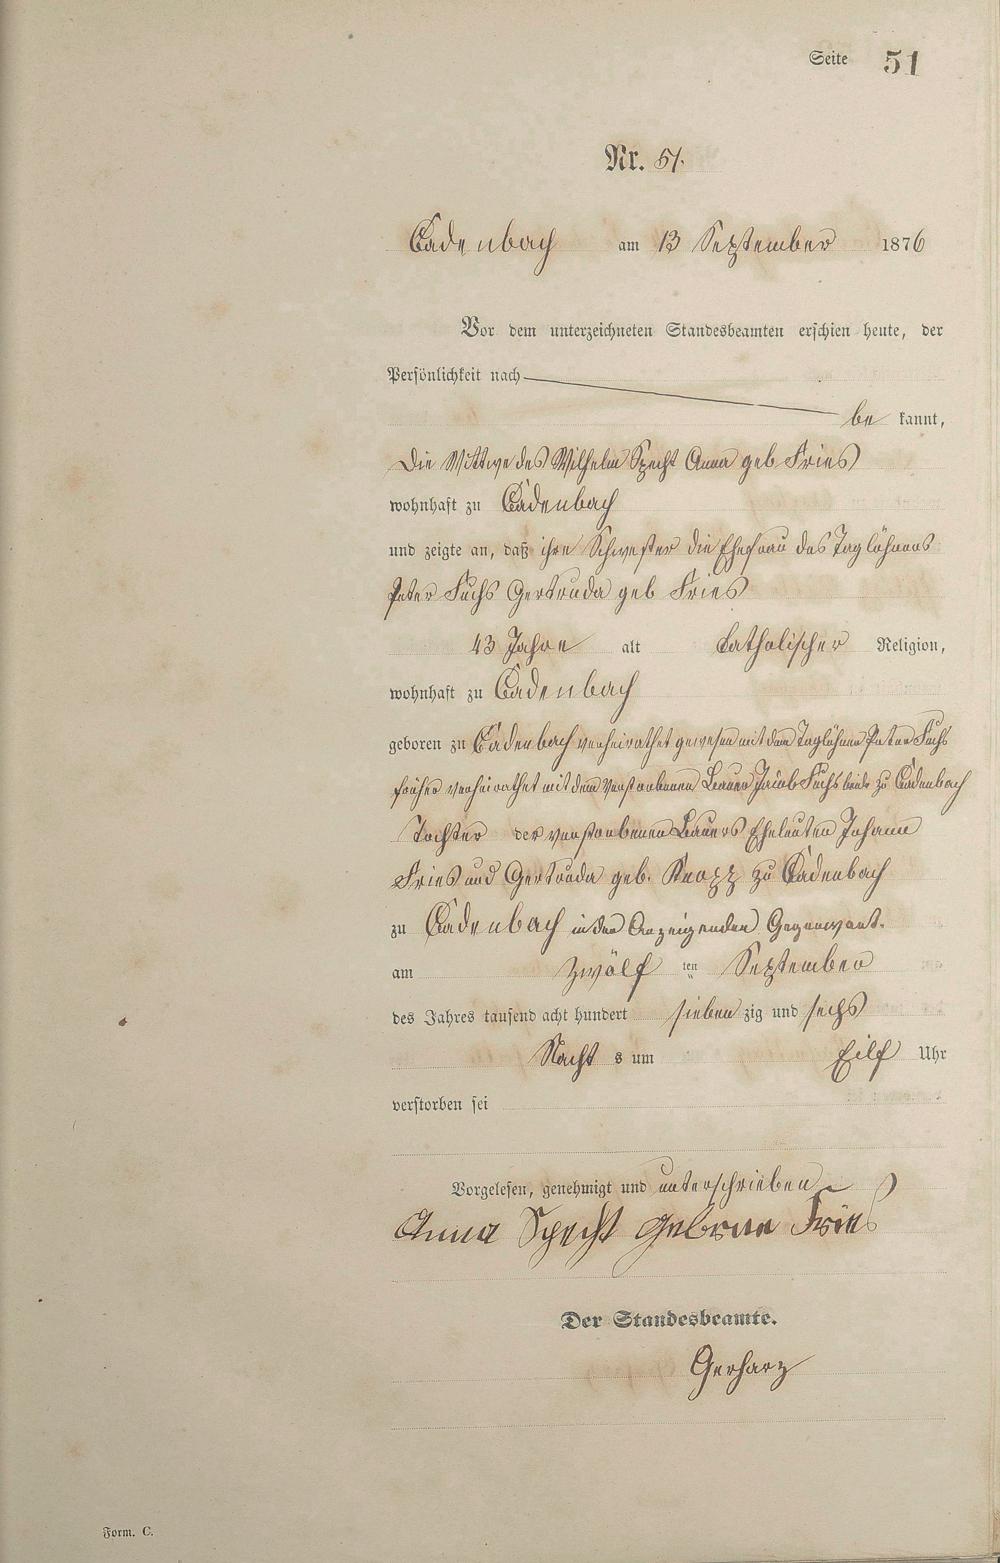 Seite 51
Nr. 51.
Cadenbach am 13 September 1876
Vor dem unterzeichneten Standesbeamten erschien heute, der
Persönlichkeit nach
be kannt,
Die Wittwe des Wilhelm Specht Anna geb Fries
wohnhaft zu Cadenbach
und zeigte an, daß ihre Schwester die Ehefrau des Taglöhners
Peter Fuchs Gertruda geb Fries
43 Jahre alt katholischer Religion,
wohnhaft zu Cadenbach
geboren zu Cadenbach verheirathet gewesen mit dem Taglöhner Peter Fuchs
früher verheirathet mit dem verstorbenen Bauer Jacob Fuchs beide zu Cadenbach
Tochter der verstorbenen Bauers Eheleuten Johann
Fries und Gertruda geb. Knopp zu Cadenbach
zu Cadenbach in der Anzeigenden Gegenwart.
am zwölf ten September
des Jahres tausend acht hundert sieben zig und sechs
Nacht s um Eilf Uhr
verstorben sei
Vorgelesen, genehmigt und unterschrieben
Anna Specht geborne Fries
Der Standesbeamte.
Gerharz
Form. C.